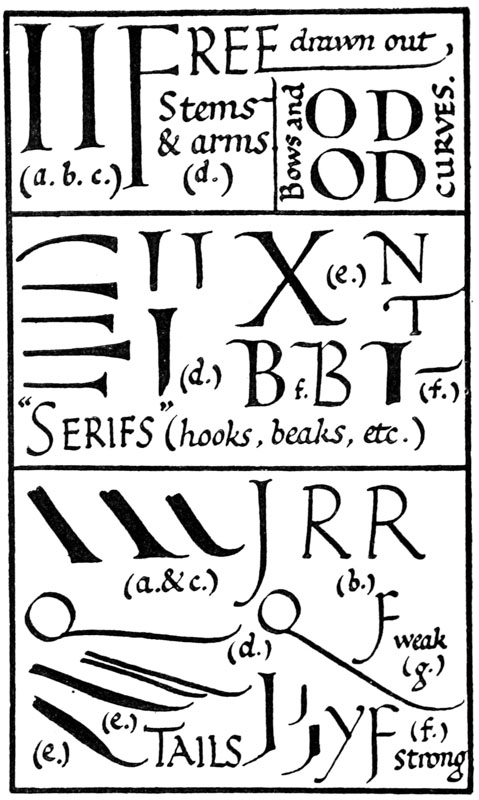 I I FREE drawn out,
Stems
& arms
(a. b. c.) (d.)
Bows and
O D
O D
CURVES.
I I X (e.) N
T
I (d.) B f. B I (f.)
"SERIFS" (hooks, beaks, etc.)
J R R
(a. & c.) (b.)
(d.)
F weak
(g.)
(e.)
(e.) TAILS J j y F (f.)
strong